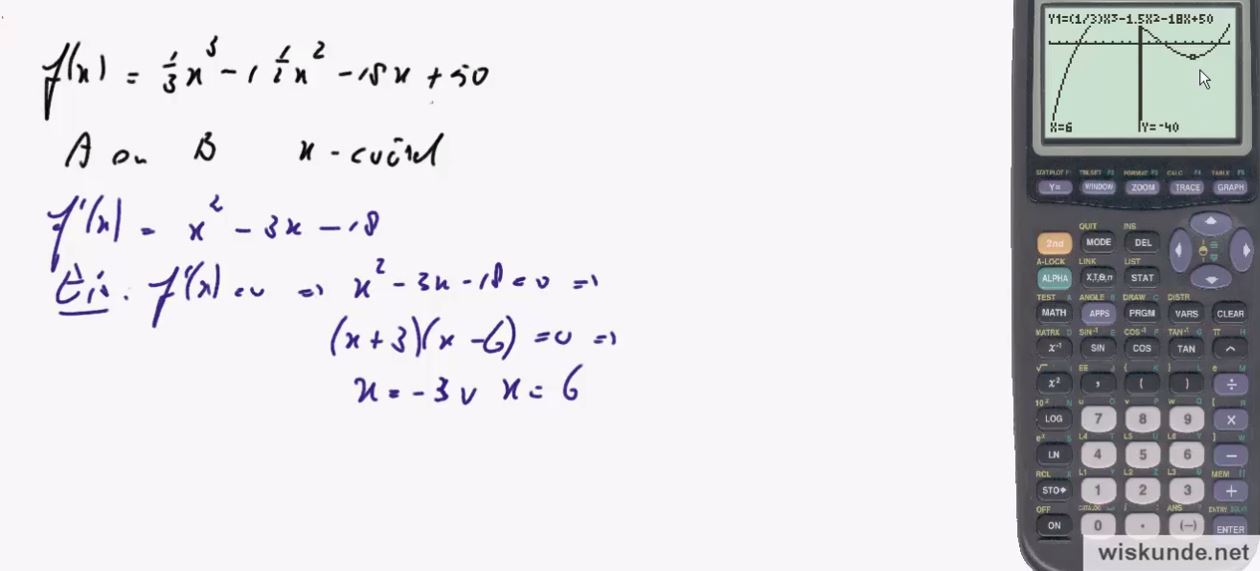 f(x) = 1/3 x³ - 1 1/2 x² - 18x + 50
A en B x-coörd
f'(x) = x² - 3x - 18
Eis: f'(x) = 0 ⇒ x² - 3x - 18 = 0 ⇒
(x + 3)(x - 6) = 0 ⇒
x = -3 ∨ x = 6
Y1=(1/3)X³-1.5X²-18X+50
X=6 Y=-40
STAT PLOT F1 TBLSET F2 FORMAT F3 CALC F4 TABLE F5
Y= WINDOW ZOOM TRACE GRAPH
QUIT INS
2nd MODE DEL
A-LOCK LINK LIST
ALPHA X,T,θ,n STAT
TEST A ANGLE B DRAW C DISTR
MATH APPS PRGM VARS CLEAR
MATRX D SIN⁻¹ E COS⁻¹ F TAN⁻¹ G π H
x⁻¹ SIN COS TAN ^
√ I EE J { K } L e M
x² , ( ) ÷
10ˣ N u O v P w Q [ R
LOG 7 8 9 ×
eˣ S L4 T L5 U L6 V ] W
LN 4 5 6 −
RCL X L1 Y L2 Z L3 θ MEM "
STO▸ 1 2 3 +
OFF CATALOG i : ANS ? ENTRY SOLVE
ON 0 . (−) ENTER
wiskunde.net